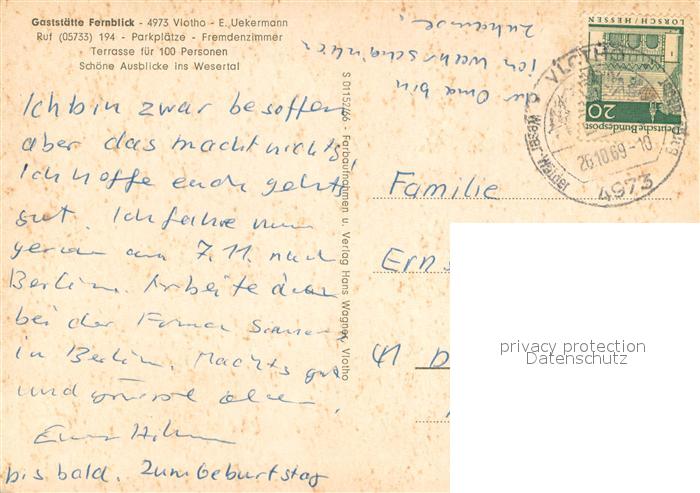 Gaststätte Fernblick - 4973 Vlotho - E. Uekermann
Ruf (05733) 194 - Parkplätze - Fremdenzimmer
Terrasse für 100 Personen
Schöne Ausblicke ins Wesertal
Ich bin zwar besoffen
aber das macht nichts,
Ich hoffe euch gehts
gut. Ich fahre nun
am 7. 11. nach
Berlin. Arbeite dann
bei der Firma
in Berlin. Machts gut
und grüsst
Euer
bis bald. Zum Geburtstag
der Oma bin
ich wahrscheinlich
zuhause.
S 01152/66 - Farbaufnahmen u. Verlag Hans Wagner, Vlotho
LORSCH/HESSEN
20
Deutsche Bundespost
VLOTHO
26.10.69-10
4973
Familie
Ern
41 D
privacy protection
Datenschutz